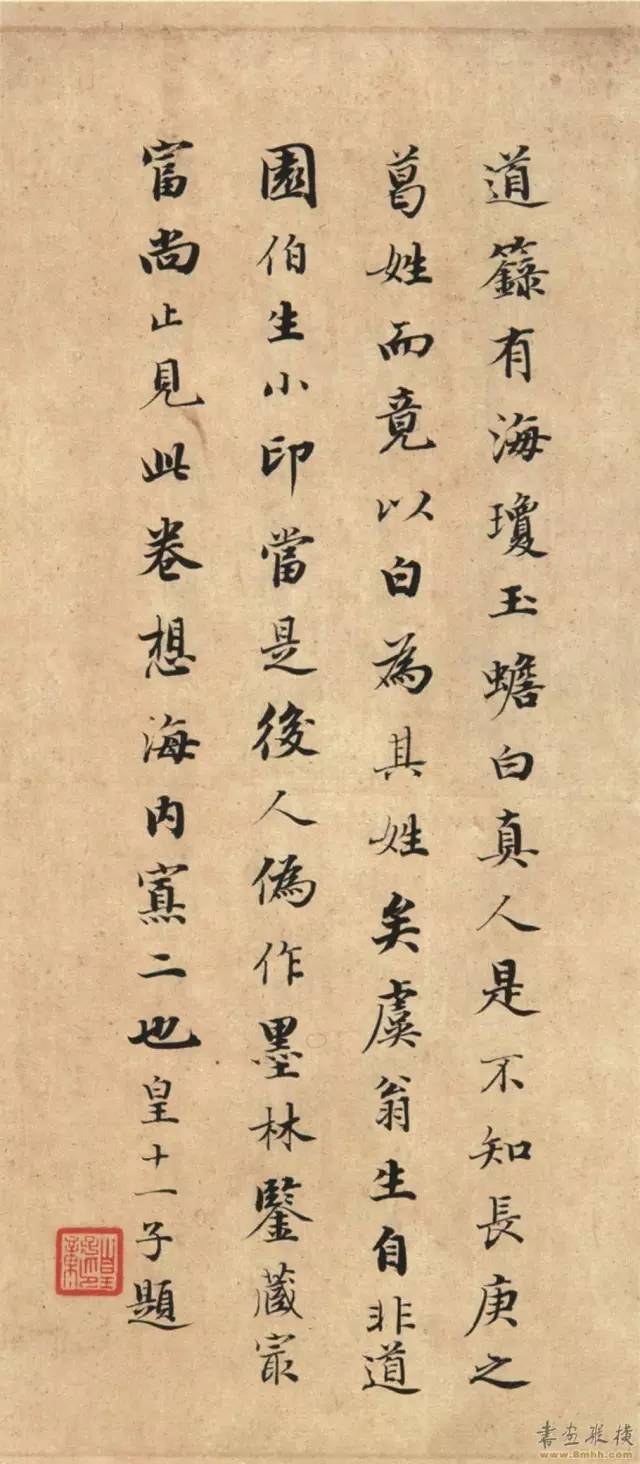 道籙有海瓊玉蟾白真人是不知長庚之
葛姓而竟以白為其姓矣虞翁生自非道
園伯生小印當是後人偽作墨林鑒藏冣
富尚止見此卷想海内寡二也皇十一子題
www.8mhh.com